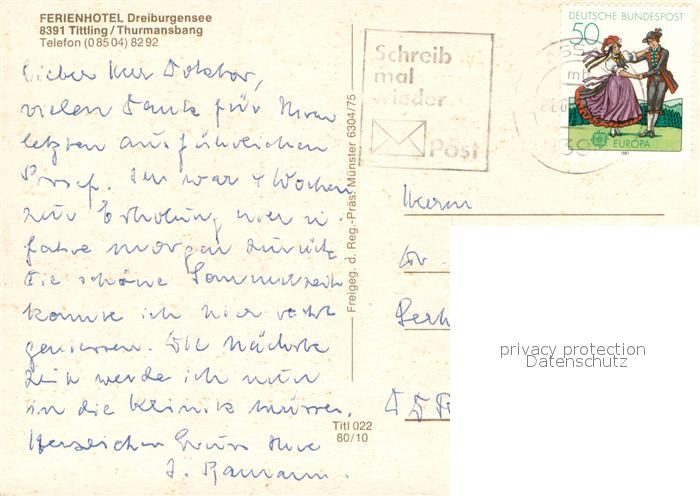 FERIENHOTEL Dreiburgensee
8391 Tittling / Thurmansbang
Telefon (0 85 04) 82 92
Lieber Herr Doktor,
vielen Dank für Ihren
letzten ausführlichen
Ich war 4 Wochen
zur Erholung hier u.
fahre morgen zurück
Die schöne Sommerzeit
konnte ich hier recht
geniessen. Die nächste
Zeit werde ich nun
in die Klinik müssen.
Herzlichen Gruss Ihre
Freigeg. d. Reg.-Präs. Münster 6304/75
Titl 022
80/10
Schreib
mal
wieder
Post
DEUTSCHE BUNDESPOST
50
EUROPA
1981
Herrn
Dr.
privacy protection
Datenschutz